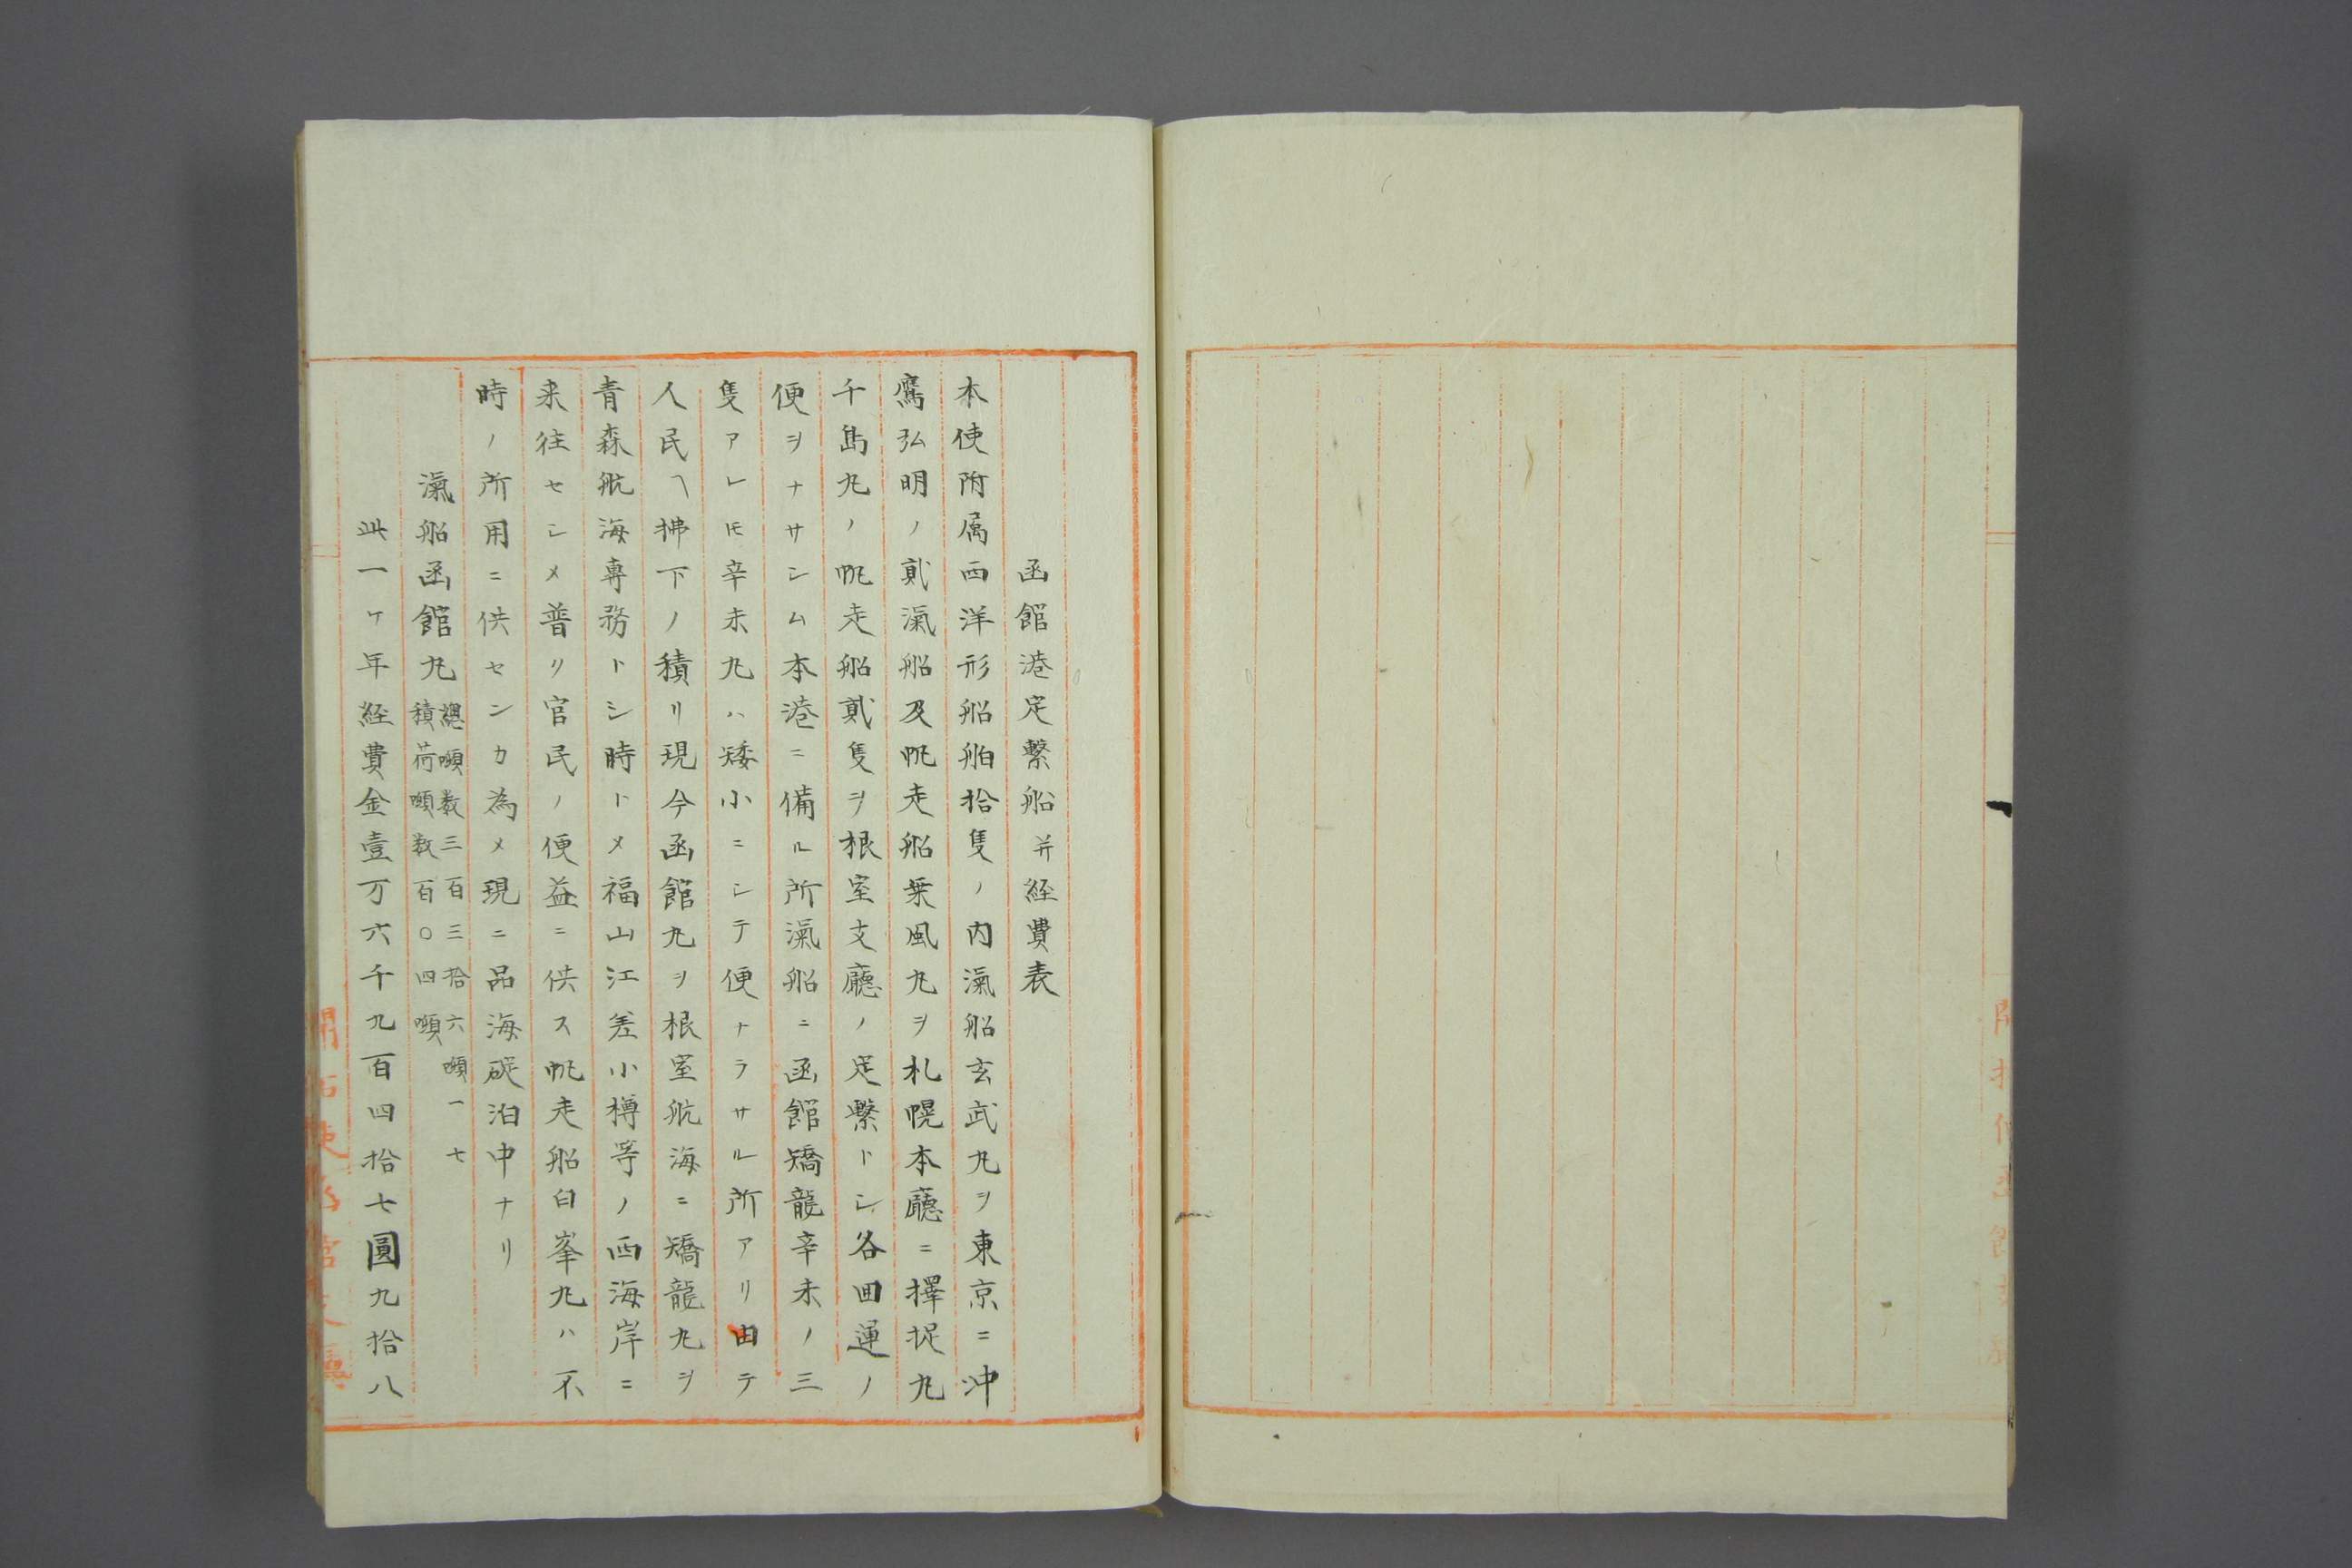 函館港定繋船并経費表
本使附属西洋形船舶拾隻ノ内滊船玄武丸ヲ東京ニ冲
鷹弘明ノ貮滊船及帆走船乗風丸ヲ札幌本廳ニ擇捉丸
千島丸ノ帆走船貮隻ヲ根室支廳ノ定繋トシ各回運ノ
便ヲナサシム本港ニ備ル所滊船ニ函館矯龍辛未ノ三
隻アレ𪜈辛未丸ハ矮小ニシテ便ナラサル所アリ由テ
人民ヘ拂下ノ積リ現今函館丸ヲ根室航海ニ矯龍丸ヲ
青森航海専務トシ時トメ福山江差小樽等ノ西海岸ニ
来往セシメ普リ官民ノ便益ニ供ス帆走船白峯丸ハ不
時ノ所用ニ供センカ為メ現ニ品海碇泊中ナリ
滊船函館丸 總噸数三百三拾六噸一七
積荷噸数百〇四噸
此一ケ年経費金壹万六千九百四拾七圓九拾八
開拓使函館支廳